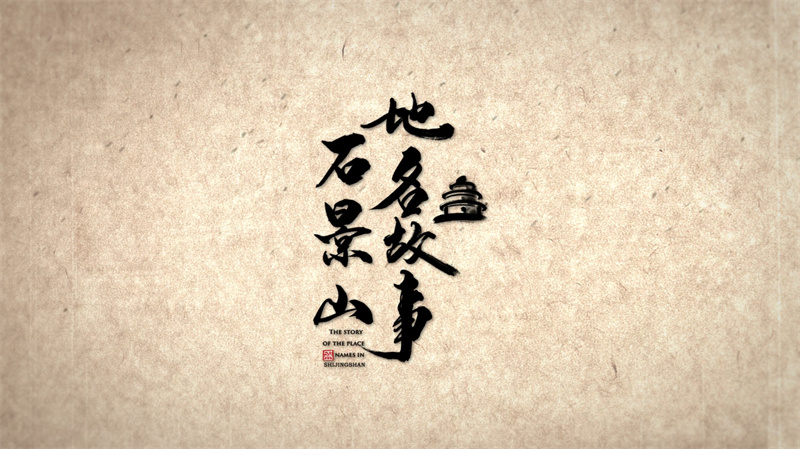 石景山
地名故事
THE STORY
OF THE PLACE
NAMES IN
SHIJINGSHAN